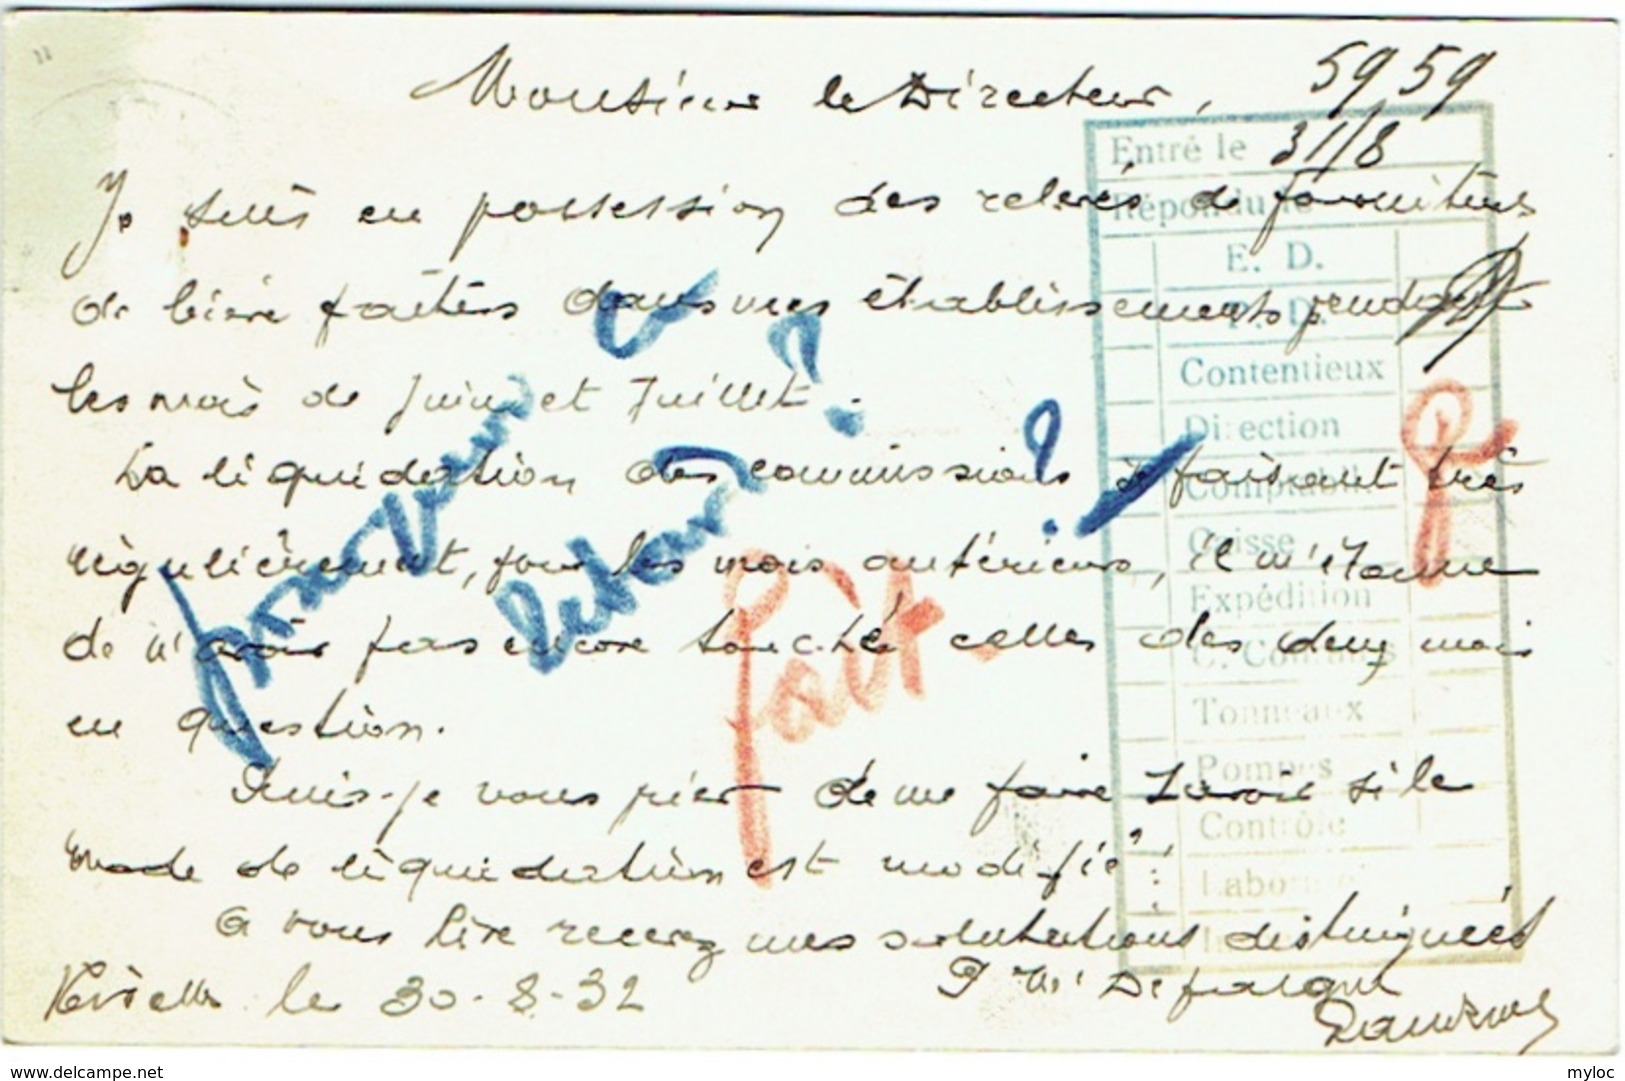 Monsieur le Directeur,
5959
Entré le 31/8
Répondu le
E. D.
P. D.
Contentieux
Direction
Comptabil.
Caisse
Expédition
Tonneaux
Pompes
Contrôle
Je suis en possession des relevés de fournitures
de bière faites dans mes établissements pendant
les mois de Juin et Juillet.
La liquidation des commissions se faisant très
régulièrement, pour les mois antérieurs, il m'étonne
de n'avoir pas encore touché celles des deux mois
en question.
Puis-je vous prier de me faire savoir si le
mode de liquidation est modifié.
A vous lire recevez mes salutations distinguées
Nivelles le 30-8-32
pourquoi ce
retard ?
?
fait.
myloc
delcampe.net